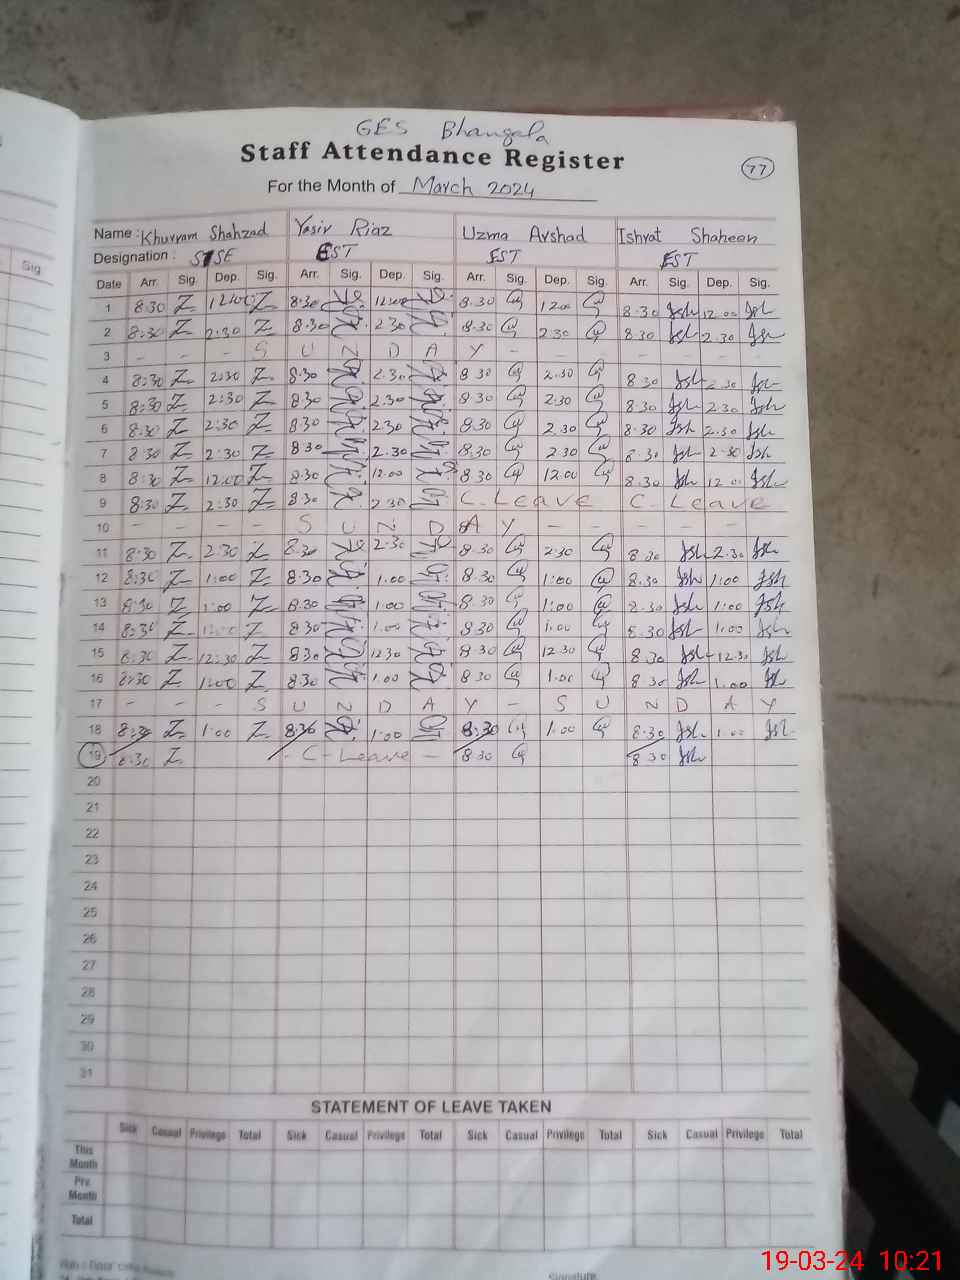 GES Bhangala
Staff Attendance Register
77
For the Month of March 2024
Name : Khurram Shahzad Yasir Riaz Uzma Arshad Ishrat Shaheen
Designation : SSE EST EST EST
Sig.
Date Arr. Sig. Dep. Sig. Arr. Sig. Dep. Sig. Arr. Sig. Dep. Sig. Arr. Sig. Dep. Sig.
1 8:30 12:00 8:30 12:00 8.30 12.00 8.30 12.00
2 8:30 2:30 8:30 2 30 8.30 2.30 8.30 2.30
3 - - - S U N D A Y - - - - - -
4 8:30 2:30 8:30 2.30 8 30 2.30 8.30 2.30
5 8:30 2:30 8:30 2.30 8.30 2.30 8.30 2.30
6 8:30 2:30 8:30 2.30 8.30 2.30 8.30 2.30
7 8:30 2:30 8:30 2.30 8.30 2.30 8.30 2.30
8 8:30 12:00 8:30 12.00 8.30 12.00 8.30 12.00
9 8:30 2:30 8:30 2 30 C. Leave C. Leave
10 - - - - S U N D A Y - - - - -
11 8:30 2:30 8:30 2.30 8.30 2.30 8.30 2.30
12 8:30 1:00 8:30 1.00 8.30 1:00 8.30 1:00
13 8:30 1:00 8.30 1.00 8.30 1:00 8.30 1:00
14 8:30 8.30 1.00 8.30 1.00 8.30 1.00
15 8:30 12:30 8:30 12 30 8.30 12.30 8.30 12.30
16 8:30 1:00 8.30 1.00 8.30 1.00 8.30 1.00
17 - - - S U N D A Y - S U N D A Y
18 8:30 1:00 8:30 1:00 8:30 1:00 8.30 1:00
19 8:30 - C - Leave - 8.30 8.30
20
21
22
23
24
25
26
27
28
29
30
31
STATEMENT OF LEAVE TAKEN
Sick Casual Privilege Total Sick Casual Privilege Total Sick Casual Privilege Total Sick Casual Privilege Total
This
Month
Prv.
Month
Total
Signature
19-03-24 10:21